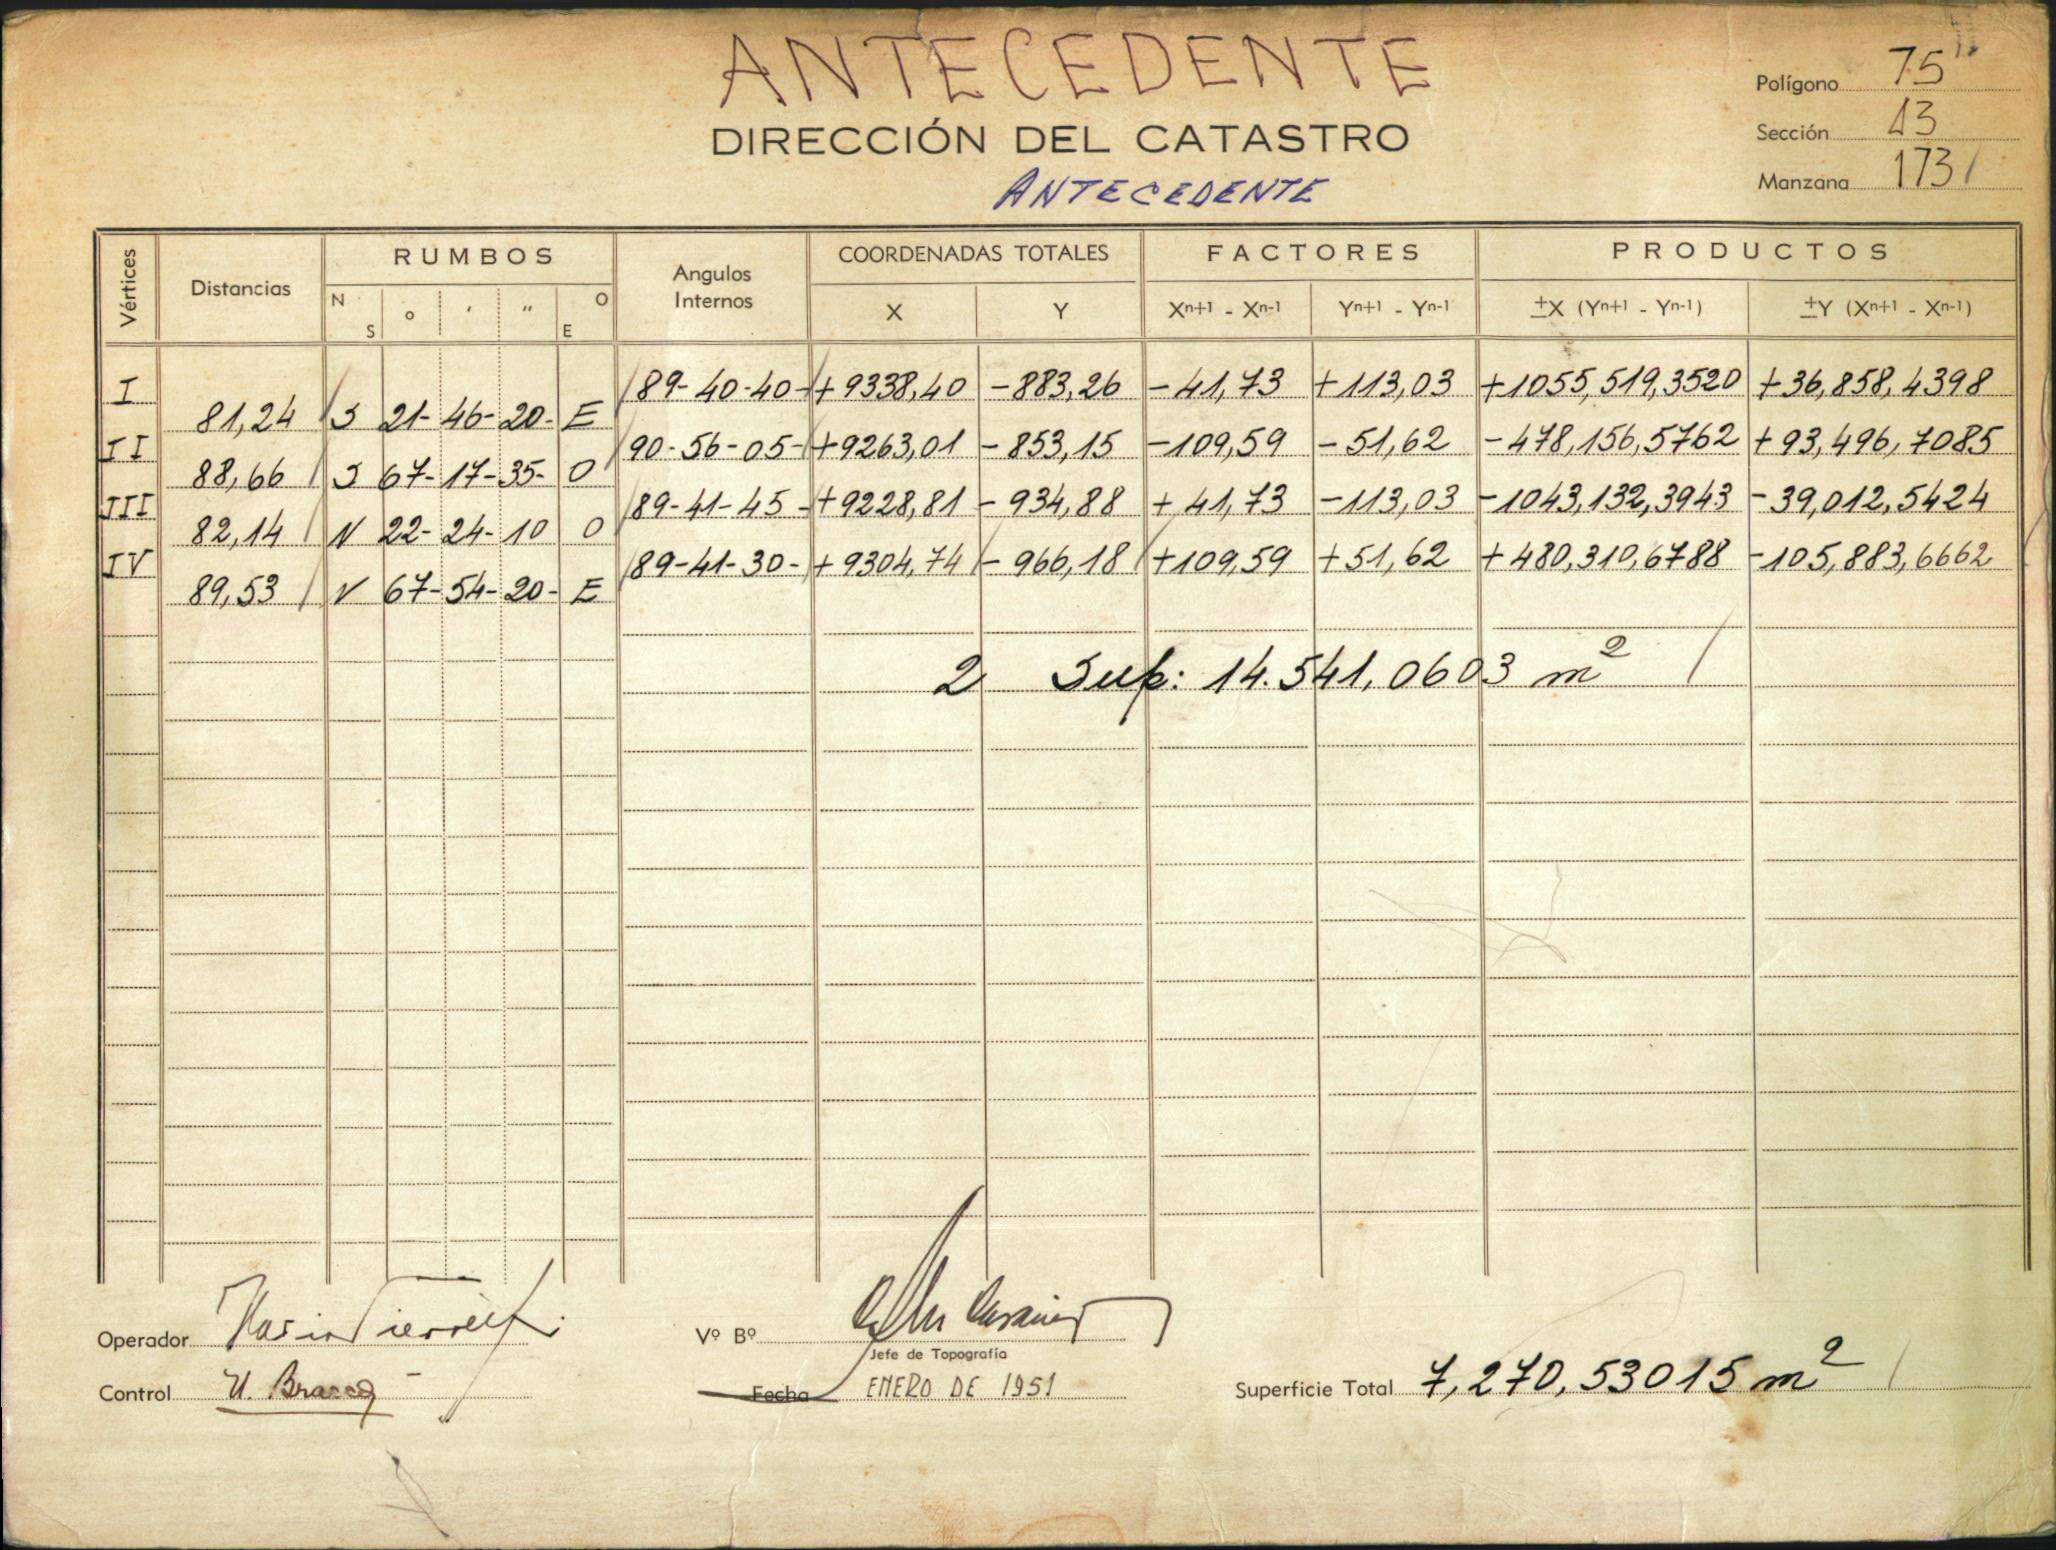 ANTECEDENTE
DIRECCIÓN DEL CATASTRO
ANTECEDENTE
Polígono 75
Sección 13
Manzana 173
Vértices Distancias RUMBOS Angulos Internos COORDENADAS TOTALES FACTORES PRODUCTOS
N S o ' " O E X Y Xn+1 - Xn-1 Yn+1 - Yn-1 ±X (Yn+1 - Yn-1) ±Y (Xn+1 - Xn-1)
I 89-40-40- +9338,40 -883,26 -41,73 +113,03 +1055,519,3520 +36,858,4398
81,24 S 21-46-20- E
II 90-56-05- +9263,01 -853,15 -109,59 -51,62 -478,156,5762 +93,496,7085
88,66 S 67-17-35- O
III 89-41-45- +9228,81 -934,88 +41,73 -113,03 -1043,132,3943 -39,012,5424
82,14 N 22-24-10 O
IV 89-41-30- +9304,74 -966,18 +109,59 +51,62 +480,310,6788 -105,883,6662
89,53 N 67-54-20- E
2 Sup: 14.541,0603 m²
Operador
Vº Bº
Jefe de Topografía
Control U. Bracco
Fecha ENERO DE 1951
Superficie Total 7,270,53015 m²